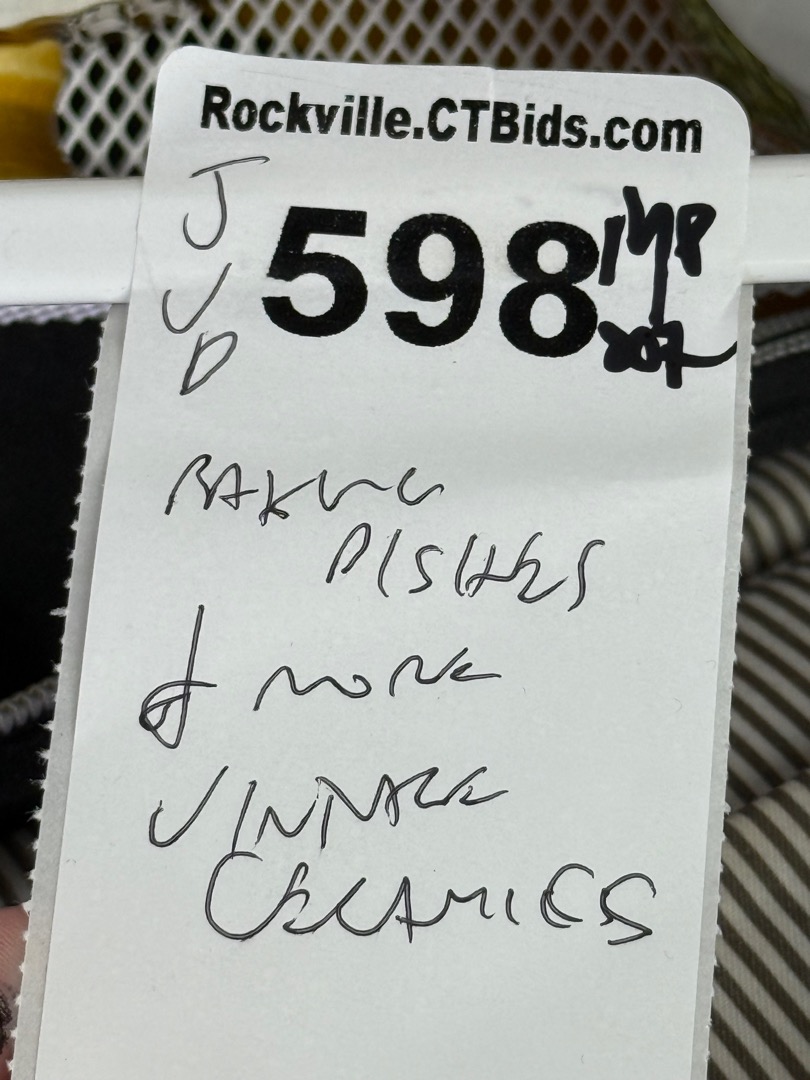 Rockville.CTBids.com
JVD
598
207
BAKING
DISHES
& MORE
VINTAGE
CERAMICS